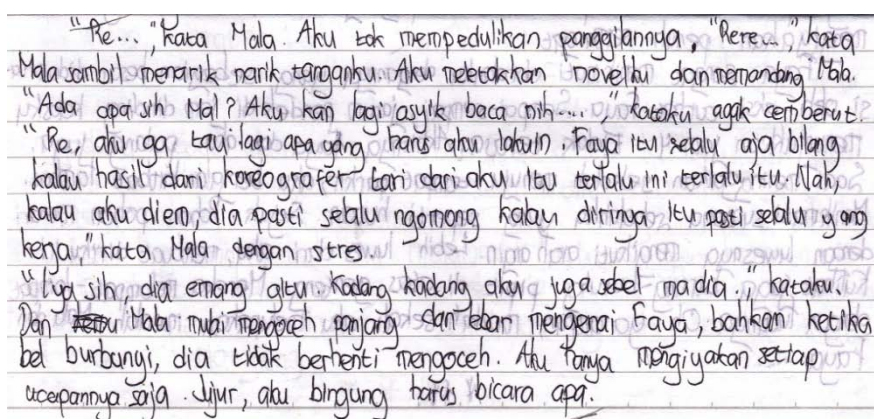 "Re...", kata Mala. Aku tak mempedulikan panggilannya, "Rere...", kata
Mala sambil menarik narik tanganku. Aku meletakkan novelku dan memandang Mala.
"Ada apa sih Mal? Aku kan lagi asyik baca nih....", kataku agak cemberut.
"Re, aku ga tau lagi apa yang harus aku lakuin. Faya itu selalu aja bilang
kalau hasil dari koreografer tari dari aku itu terlalu ini terlalu itu. Nah,
kalau aku diem, dia pasti selalu ngomong kalau dirinya itu pasti selalu yang
kerja," kata Mala dengan stres.
"Iya sih, dia emang gitu. Kadang kadang aku juga sebel ma dia.", kataku.
Dan Mala mulai mengoceh panjang dan lebar mengenai Faya, bahkan ketika
bel burbunyi, dia tidak berhenti mengoceh. Aku hanya mengiyakan setiap
ucapannya saja. Jujur, aku bingung harus bicara apa.